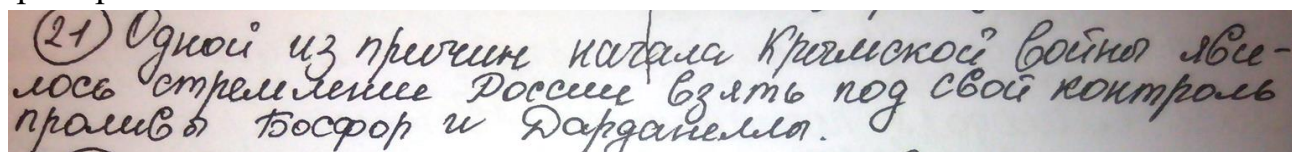 21 Одной из причин начала Крымской войны яви-
лось стремление России взять под свой контроль
проливы Босфор и Дарданеллы.